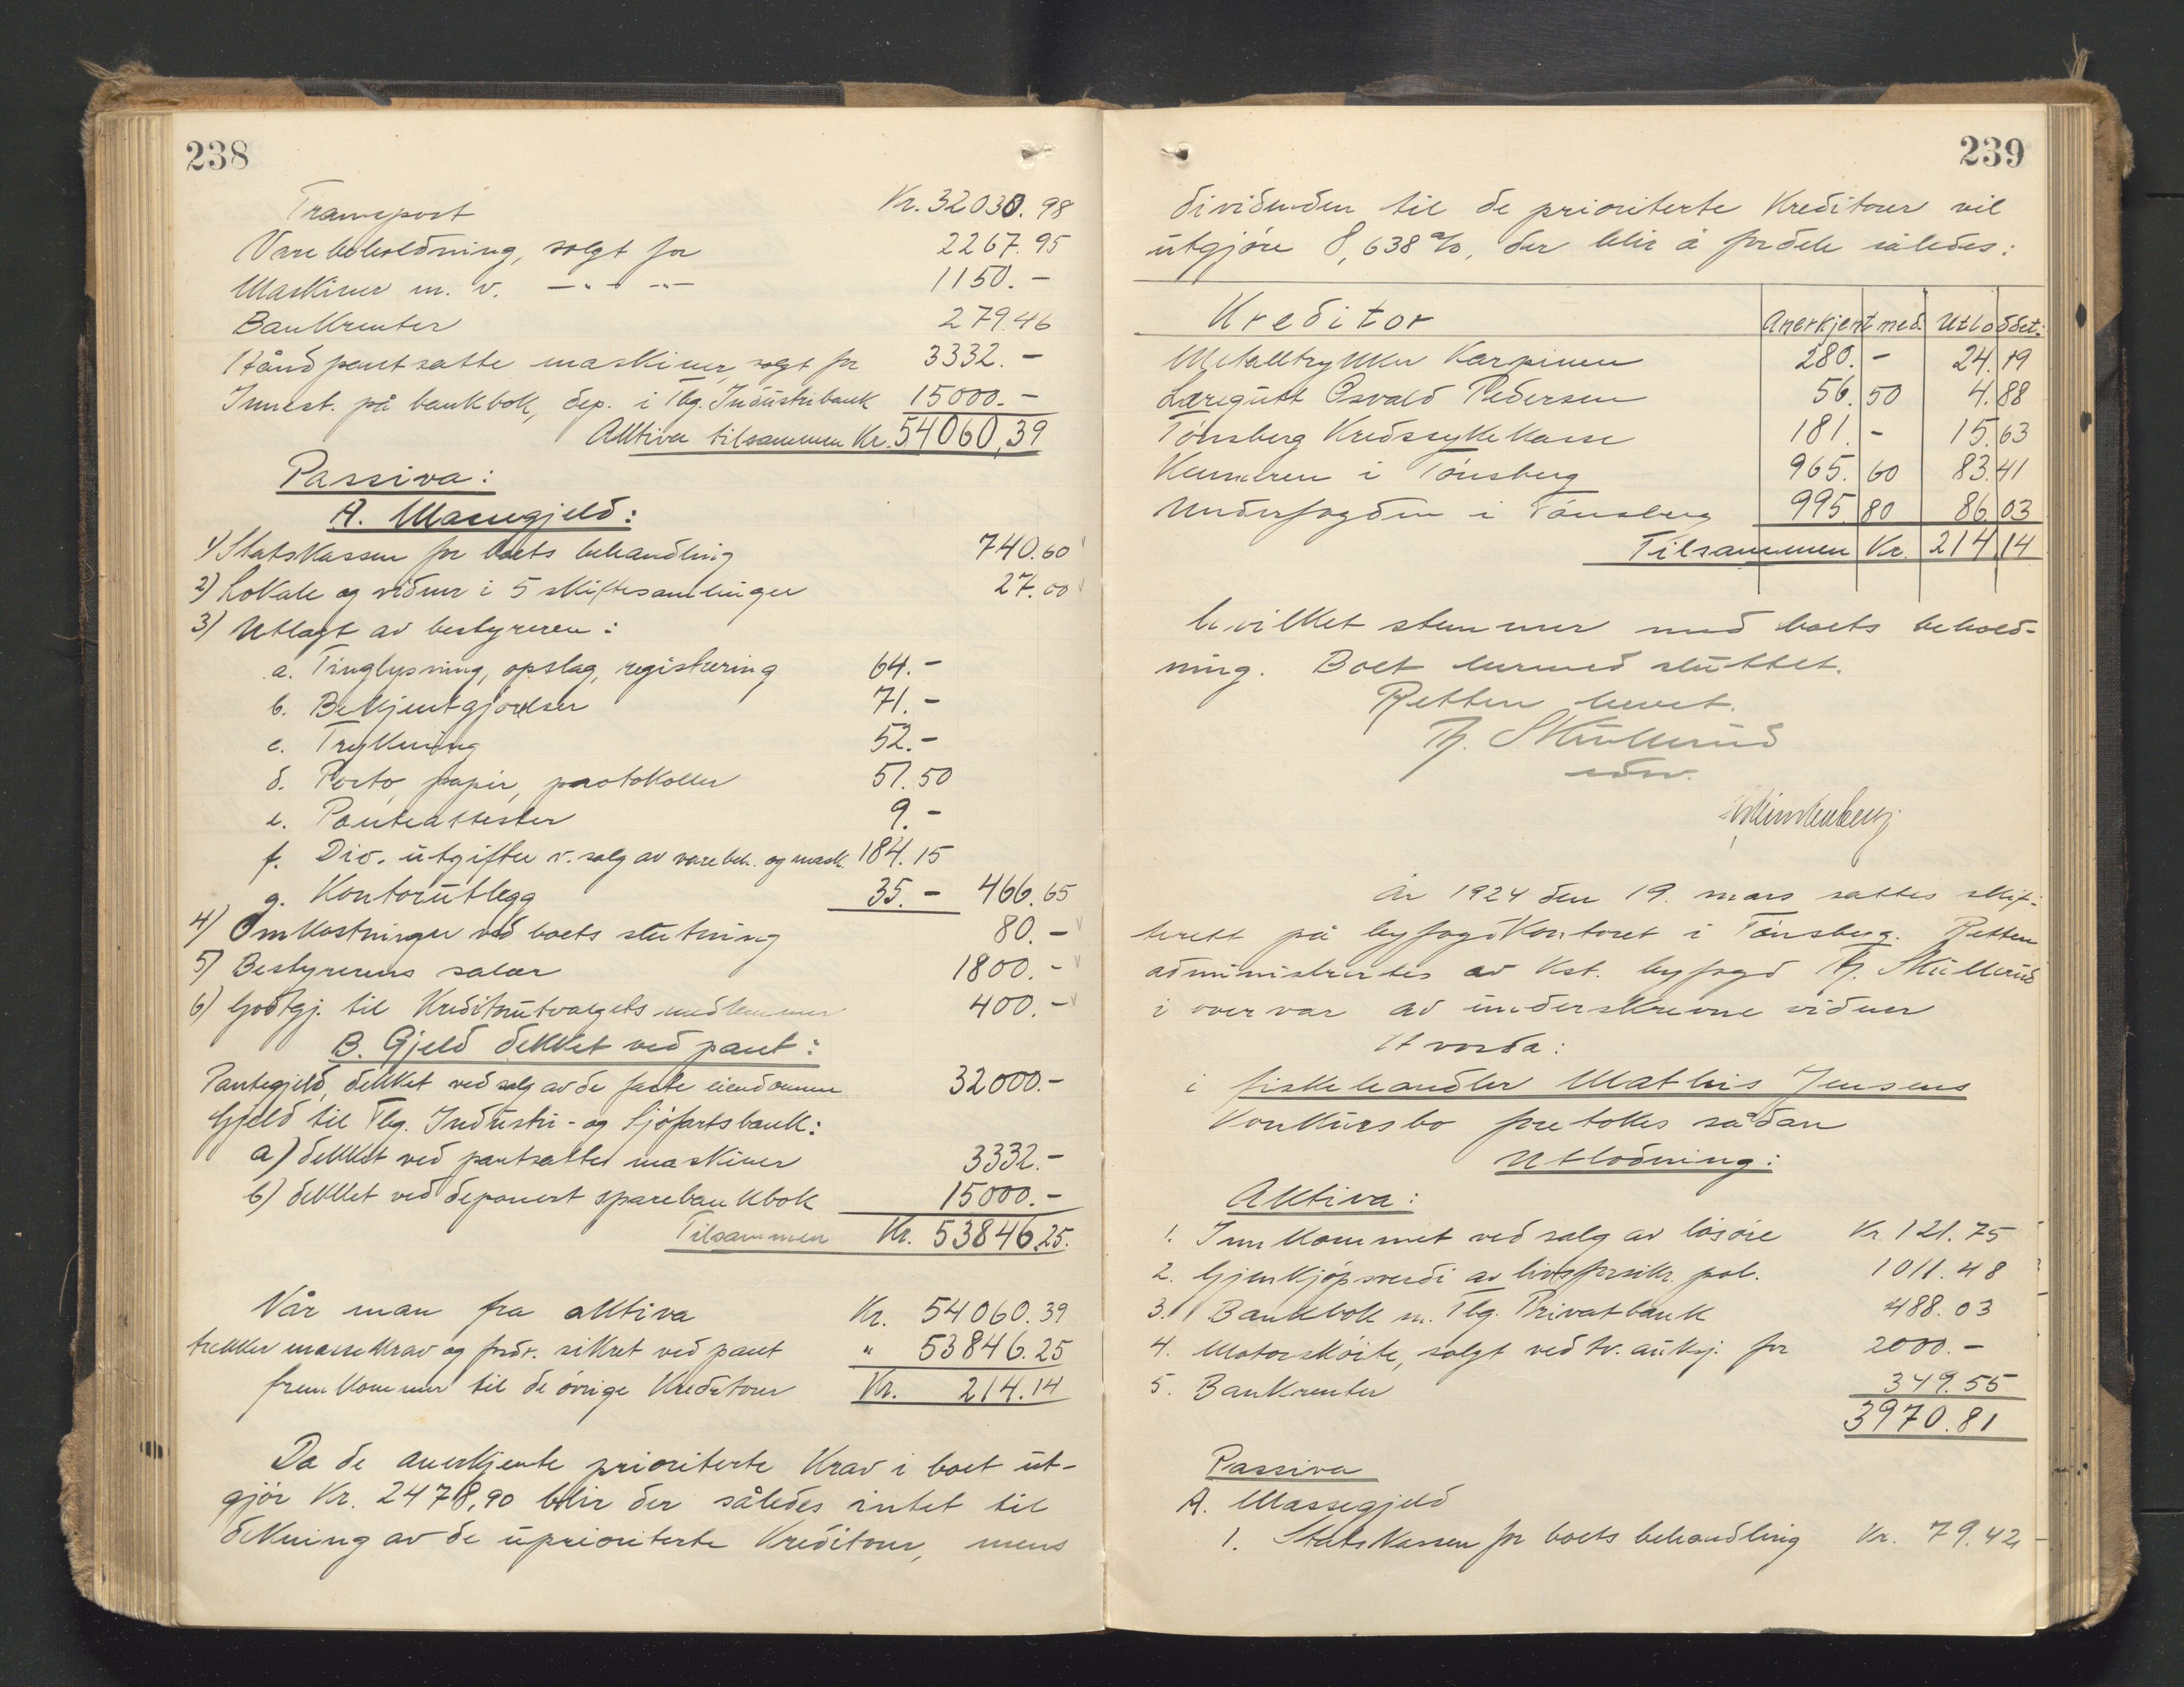 238
Transport Kr. 32030.98
Varebeholdning, solgt for 2267.95
Maskiner m. v. — „ — „ — 1150.-
Bankrenter 279.46
Håndpantsatte maskiner, solgt for 3332.-
Innest. på bankbok, dep. i Tbg. Industribank 15000.-
Aktiva tilsammen Kr. 54060,39
Passiva:
A. Massegjeld:
1) Statskassen for boets behandling 740.60
2) Lokale og vidner i 5 skiftesamlinger 27.00
3) Utlagt av bestyreren:
a. Tinglysning, opslag, registrering 64.-
b. Bekjentgjørelser 71.-
c. Trykning 52.-
d. Porto, papir, protokoller 51.50
e. Panteattester 9.-
f. Div. utgifter v. salg av varebeh. og mask. 184.15
g. Kontorutlegg 35.- 466.65
4) Omkostninger ved boets slutning 80.-
5) Bestyrerens salær 1800.-
6) Godtgj. til Kreditorutvalgets medlemmer 400.-
B. Gjeld dekket ved pant:
Pantegjeld, dekket ved salg av de faste eiendomme 32000.-
Gjeld til Tbg. Industri- og Sjøfartsbank:
a) dekket ved pantsatte maskiner 3332.-
b) dekket ved deponert sparebankbok 15000.-
Tilsammen Kr. 53846.25.
Når man fra aktiva Kr. 54060.39
trekker massekrav og fordr. sikret ved pant „ 53846.25
fremkommer til de øvrige Kreditorer Kr. 214.14
Da de anerkjente prioriterte Krav i boet ut-
gjør Kr. 2478,90 blir der således intet til
dekning av de uprioriterte Kreditorer, mens
239
dividenden til de prioriterte Kreditorer vil
utgjøre 8,638 %, der blir å fordele således:
Kreditor Anerkjent med. Utloddet:
Metalltrykker Karpinen 280.- 24.19
Læregutt Osvald Pedersen 56.50 4.88
Tønsberg Kredssykekasse 181.- 15.63
Kemneren i Tønsberg 965.60 83.41
Underfogden i Tønsberg 995.80 86.03
Tilsammen Kr. 214.14
hvilket stemmer med boets behold-
ning. Boet hermed sluttet.
Retten hevet.
Th. Skullerud
edsv.
År 1924 den 19. mars sattes skif-
terett på byfogdkontoret i Tønsberg. Retten
administrertes av kst. byfogd Th. Skullerud
i overvær av underskrevne vidner
Hvorda:
i fiskehandler Mathis Jensens
Konkursbo foretokes sådan
Utlodning:
Aktiva:
1. Innkommet ved salg av løsøre Kr. 121.75
2. Gjenkjøpsverdi av livsforsikr. pol. 1011.48
3. Bankbok m. Tbg. Privatbank 488.03
4. Motorskøite, solgt ved tv. auksj. for 2000.-
5. Bankrenter 349.55
3970.81
Passiva
A. Massegjeld
1. Statskassen for boets behandling Kr. 79.42